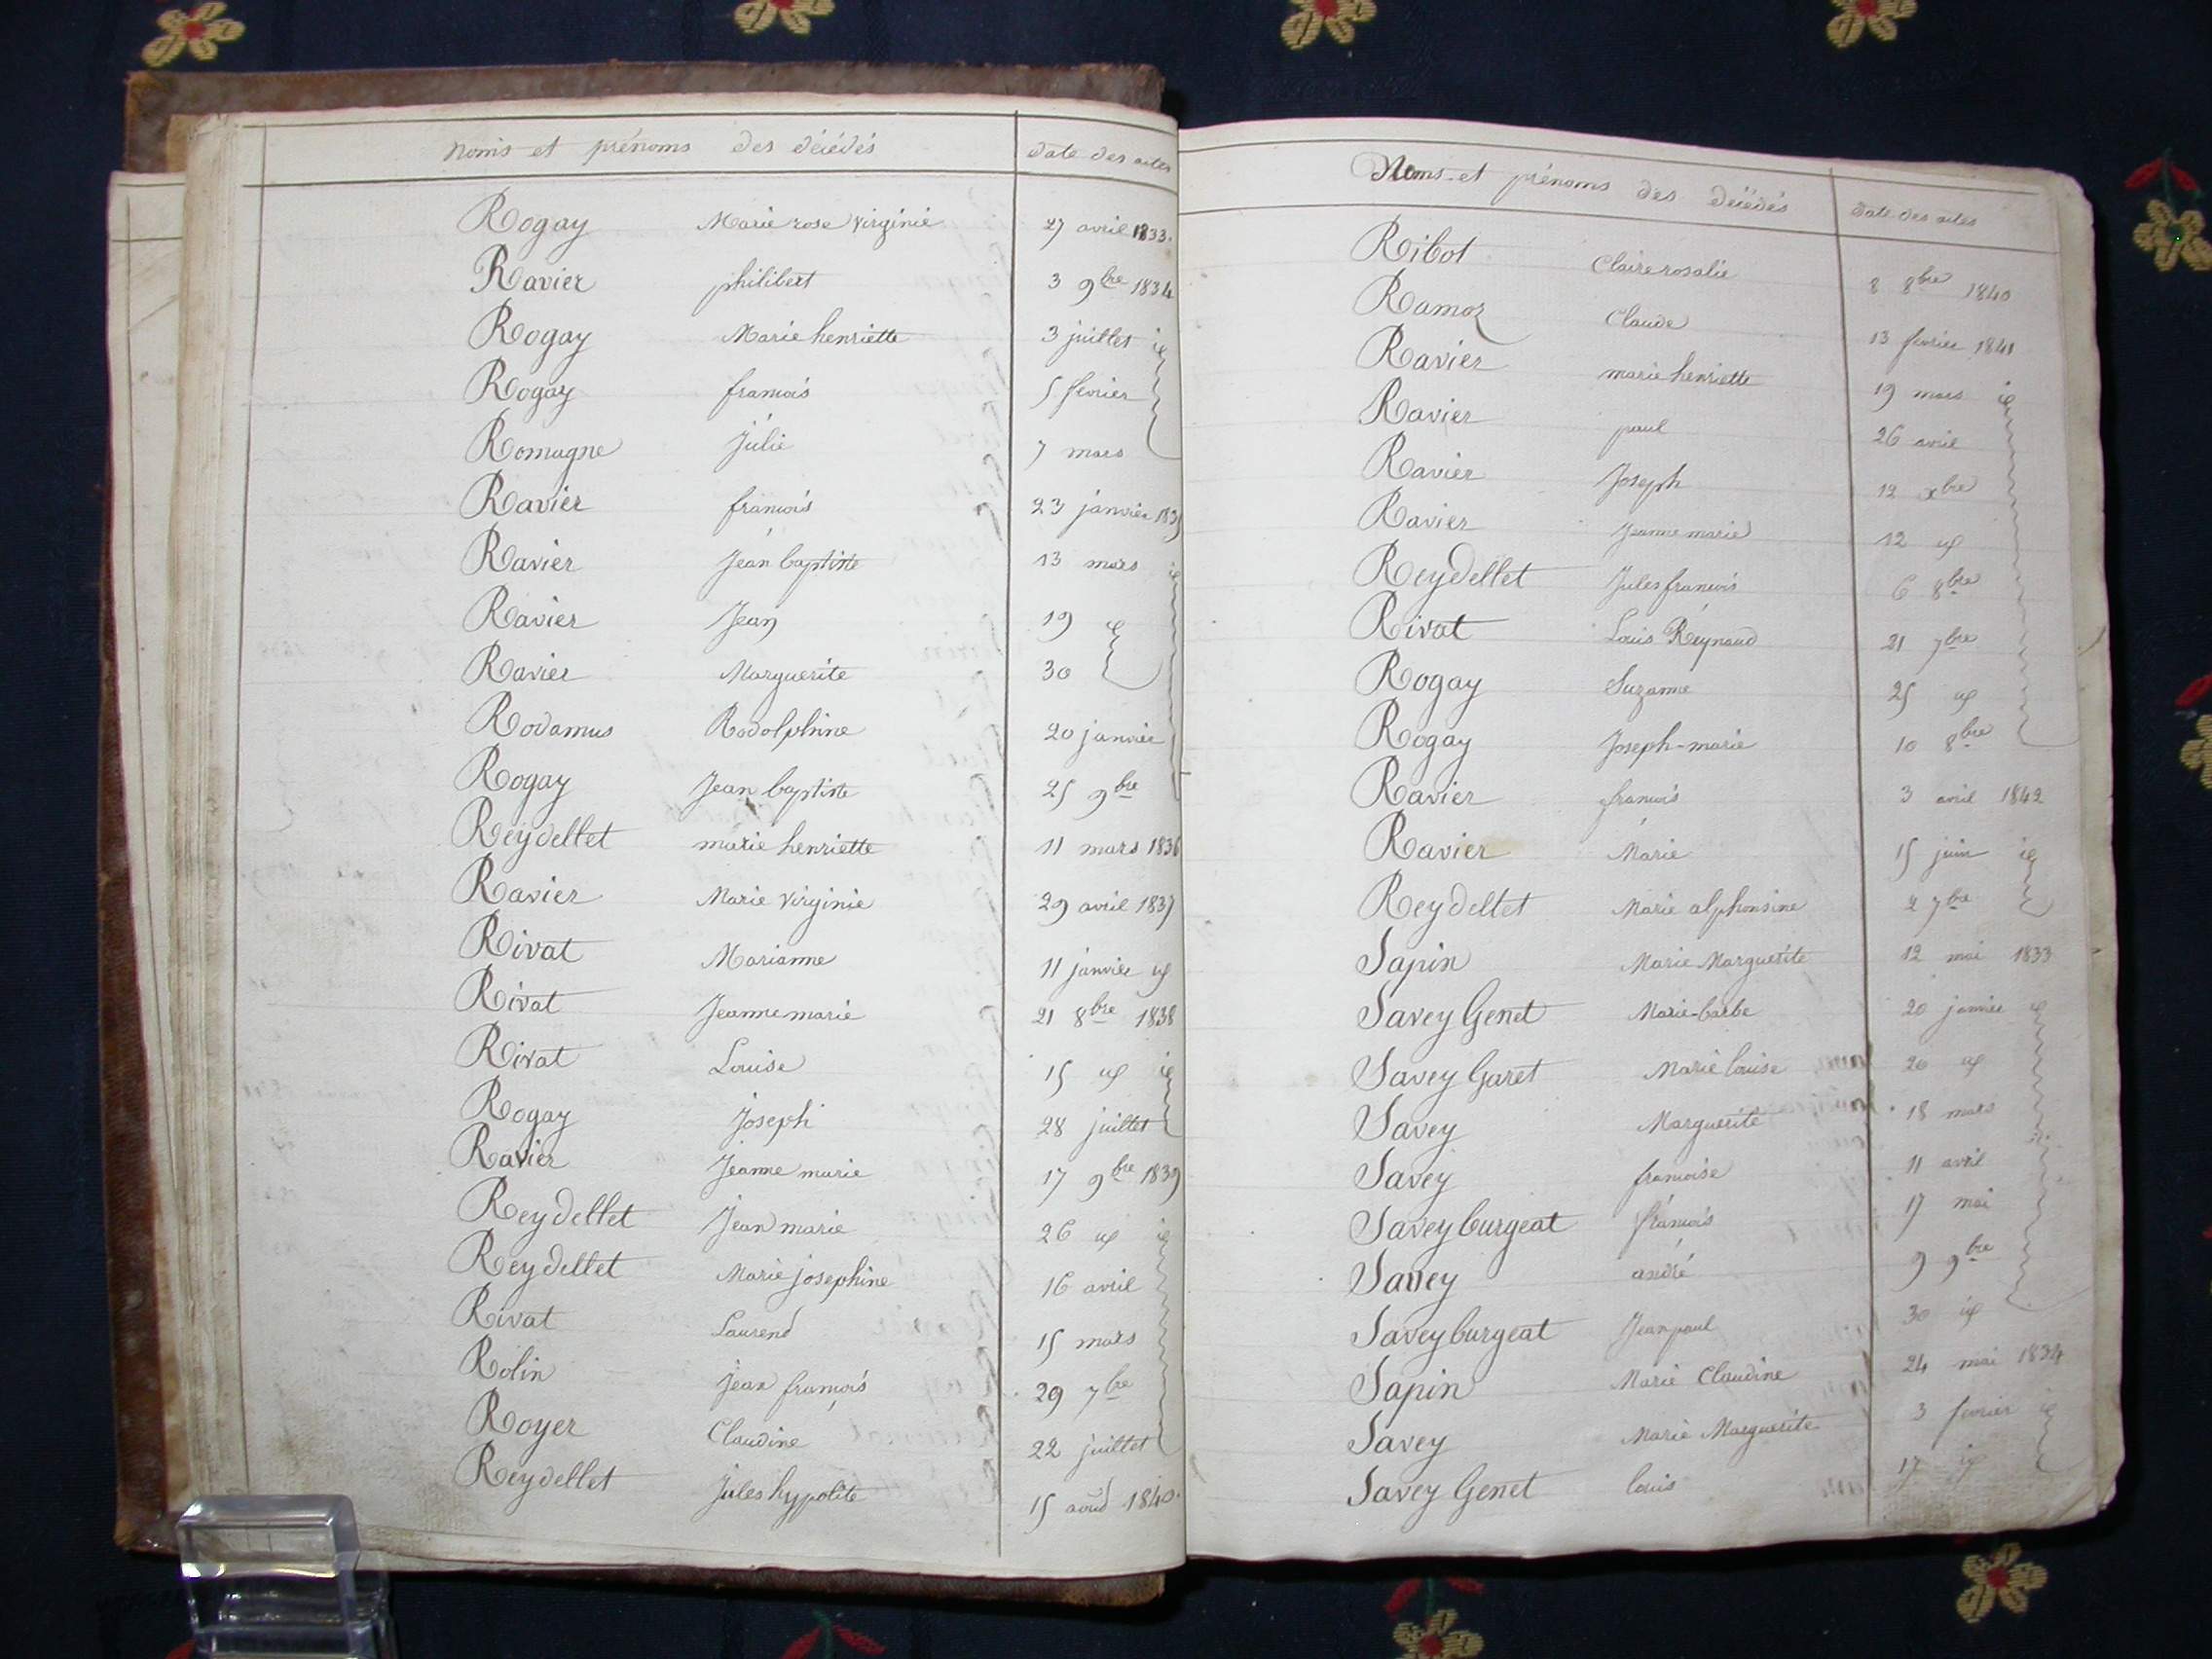 noms et prénoms des décédés date des actes
Rogay Marie rose Virginie 27 avril 1833.
Ravier philibert 3 9bre 1834
Rogay Marie henriette 3 juillet id
Rogay francois 5 fevrier
Romagne Julie 7 mars
Ravier francois 23 janvier 1835
Ravier Jean baptiste 13 mars id
Ravier Jean 19 id
Ravier Marguerite 30
Rodamus Rodolphine 20 janvier
Rogay Jean baptiste 25 9bre
Reydellet marie henriette 11 mars 1836
Ravier Marie Virginie 29 avril 1837
Rivat Marianne 11 janvier id
Rivat Jeanne marie 21 8bre 1838
Rivat Louise 15 id id
Rogay Joseph 28 juillet
Ravier Jeanne marie 17 9bre 1839
Reydellet Jean marie 26 id id
Reydellet Marie josephine 16 avril
Rivat Laurend 15 mars
Rolin jean francois 29 7bre
Royer Claudine 22 juillet
Reydellet Jules hypolite 15 aoud 1840.
Noms et prénoms des décédés date des actes
Ribot Claire rosalie 8 8bre 1840
Ramoz Claude 13 fevrier 1841
Ravier marie henriette 19 mars id
Ravier paul 26 avril
Ravier Joseph 12 xbre
Ravier Jeanne marie 12 id
Reydellet Jules francois 6 8bre
Rivat Louis Reynaud 21 7bre
Rogay Suzanne 25 id
Rogay Joseph-marie 10 8bre
Ravier francois 3 avril 1842
Ravier Marie 15 juin id
Reydellet Marie alphonsine 2 7bre
Sapin Marie Marguerite 12 mai 1833
Savey Genet Marie-barbe 20 janvier id
Savey Garet Marie louise 20 id
Savey Marguerite 18 mars
Savey francoise 11 avril
Savey burgeat francois 17 mai
Savey andré 9 9bre
Savey burgeat Jean paul 30 id
Sapin Marie Claudine 24 mai 1834
Savey Marie Marguerite 3 fevrier id
Savey Genet louis 17 id